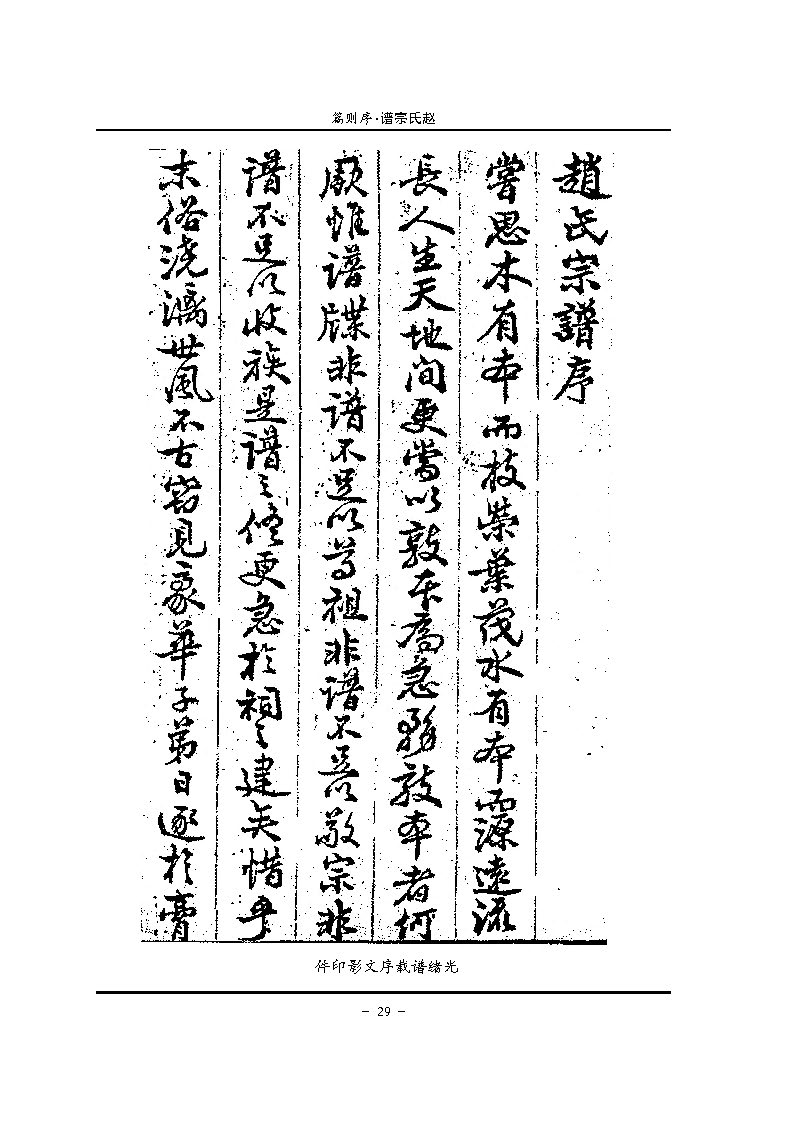 赵氏宗谱·序则篇
趙氏宗譜序
嘗思木有本而枝榮葉茂水有本而源遠流
長人生天地间更當以敦本為急務敦本者何
厥惟谱牒非谱不足以尊祖非谱不足以敬宗非
谱不足以收族是谱之修更急於祠之建矣惜乎
末俗浇漓世風不古窃見豪華子弟日逐於膏
光绪谱载序文影印件
- 29 -